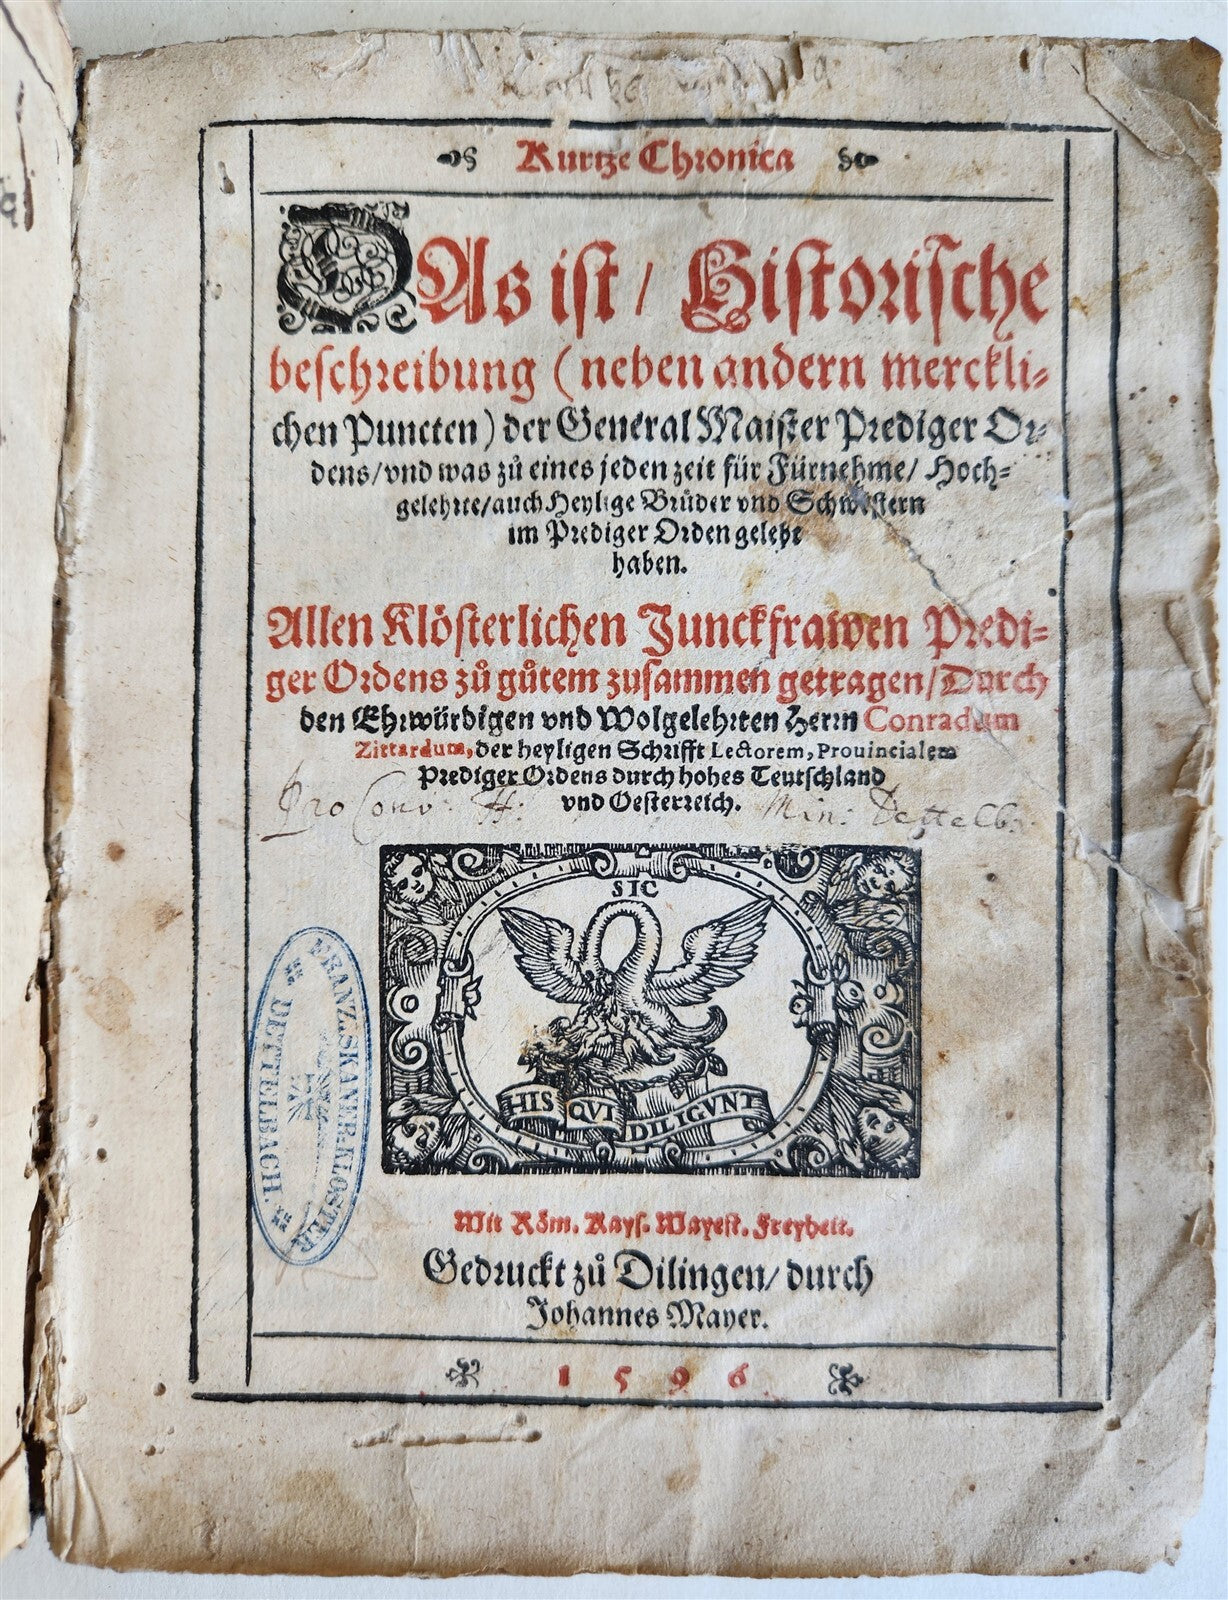 Kurtze Chronica
DAs ist / Historische
beschreibung (neben andern merckli-
chen Puncten) der General Maister Prediger Or-
dens/vnd was zů eines jeden zeit für Fürnehme/ Hoch-
gelehrte/auch Heylige Brůder vnd Schwestern
im Prediger Orden gelebt
haben.
Allen Klösterlichen Junckfrawen Predi-
ger Ordens zů gůtem zusammen getragen/Durch
den Ehrwürdigen vnd Wolgelehrten Herrn Conradum
Zittardum, der heyligen Schrifft Lectorem, Prouincialem
Prediger Ordens durch hohes Teutschland
vnd Oesterreich.
Pro Conv: ff: Min: Dettelb:
SIC
HIS QVI DILIGVNT
FRANZISKANER-KLOSTER
DETTELBACH.
Mit Röm. Kays. Mayest. Freyheit.
Gedruckt zů Dilingen/ durch
Johannes Mayer.
1596